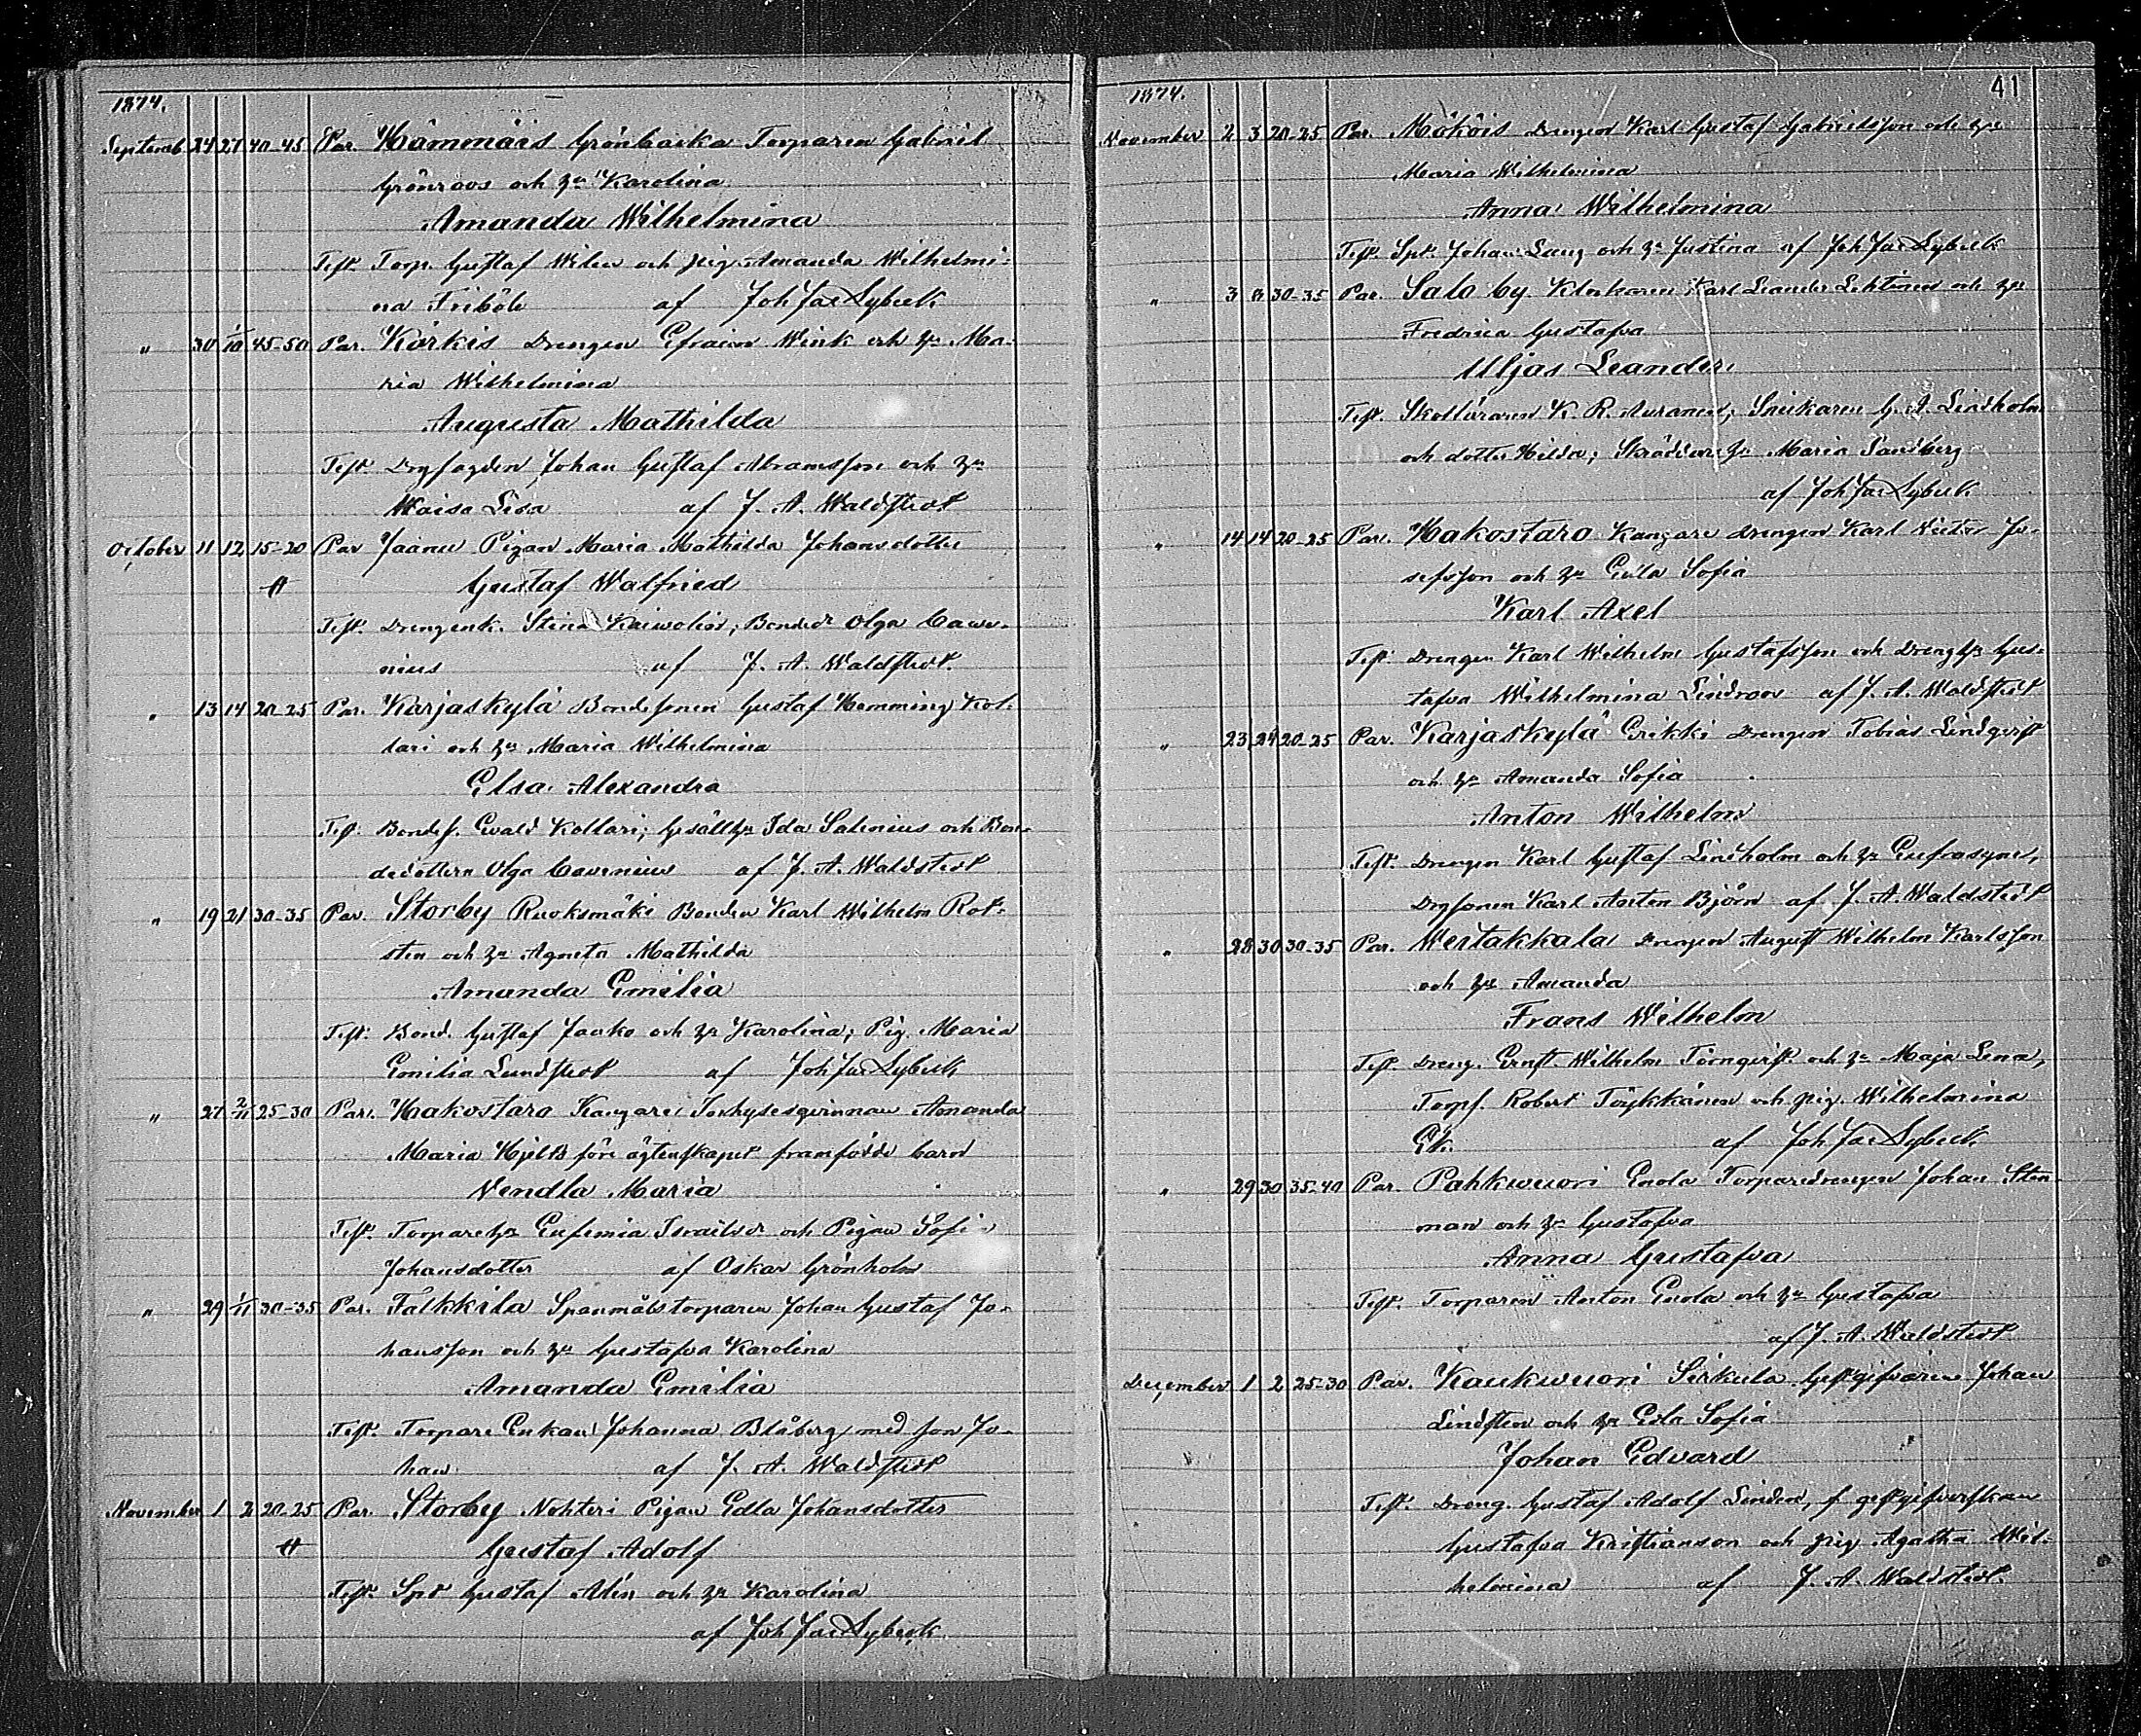 1874.
Septemb. 24 27 40-45 Par. Hämmäis Grönbacka Torparen Gabriel
Grönroos och h:u Karolina
Amanda Wilhelmina
Test. Torp. Gustaf Wilen och pig. Amanda Wilhelmi-
na Friböle af Joh Jac Lybeck
" 30 1/10 45-50 Par. Kärkis Drengen Efraim Wink och h:u Ma-
ria Wilhelmina
Augusta Mathilda
Test. Johan Gustaf Abramsson och h:u
Lisa af J. A. Waldstedt
October 11 12 15-20 Par Pigan Maria Mathilda Johansdotter
# Gustaf Walfried
Test. Drengenk. Stina Kaiwolin; Bonded. Olga Cawe-
nius af J. A. Waldstedt.
" 13 14 20-25 Par. Karjaskylä Bondesonen Gustaf Hemming Kol-
lari och h:u Maria Wilhelmina
Elsa Alexandra
Test. Bondes. Evald Kollari; Gesällh:u Ida Salenius och Bon-
dedottern Olga Cavenius af J. A. Waldstedt
" 19 21 30-35 Par. Storby Ruoksmäki Bonden Karl Wilhelm Rot-
sten och h:u Agneta Mathilda
Amanda Emilia
Test. Bond. Gustaf Jaako och h:u Karolina; Pig. Maria
Emilia Lundstedt af Joh Jac Lybeck
" 27 2/11 25-30 Par. Hakostaro Kangare Inhysesqvinnan Amanda
Maria Hjelts före ägtenskapet framfödde barn
Vendla Maria
Test. Torpareh:u Eufemia Israelsd. och Pigan Sofia
Johansdotter af Oskar Grönholm
" 29 1/11 30-35 Par. Fälkkilä Spanmålstorparen Johan Gustaf Jo-
hansson och h:u Gustafva Karolina
Amanda Emilia
Test. Torpare Enkan Johanna Blåberg med son Jo-
han. af J. A. Waldstedt
November 1 2 20-25 Par. Storby Nohteri Pigan Edla Johansdotter
# Gustaf Adolf
Test. Spt Gustaf Alén och h:u Karolina
af Joh Jac Lybeck
41
1874.
November 2 3 20-25 Par. Mököis Drengen Karl Gustaf Gabrielsson och h:u
Maria Wilhelmina
Anna Wilhelmina
Test. Spt. Johan Lang och h:u Justina af Joh Jac Lybeck
" 3 8 30-35 Par. Salo by. Klockaren Karl Leander Lehtinen och h:u
Fredrica Gustafva
Uljas Leander
Test. Skolläraren K. R. Auranen; Snickaren G. A. Lindholm
och dotter Hilda; Skräddare h:u Maria Sandberg
af Joh Jac Lybeck
" 14 14 20-25 Par. Hakostaro Kangare Drengen Karl Victor Jo-
sefsson och h:u Evla Sofia
Karl Axel
Test. Drengen Karl Wilhelm Gustafsson och Drengh:u Gus-
tafva Wilhelmina Lindroos af J. A. Waldstedt
" 23 24 20-25 Par. Karjaskylä Erikki Drengen Tobias Lindqvist
och h:u Amanda Sofia
Anton Wilhelm
Test. Drengen Karl Gustaf Lindholm och h:u Eufrosyne,
Drgsonen Karl Anton Björn af J. A. Waldstedt
" 28 30 30-35 Par. Wertakkala Drengen August Wilhelm Karlsson
och h:u Amanda
Frans Wilhelm
Test. Dreng. Ernst Wilhelm Törnqvist och h:u Maja Lena,
Torps. Robert Töykkänen och pig. Wilhelmina
Ek. af Joh Jac Lybeck
" 29 30 35-40 Par. Pahkwuori Enola Torparedrengen Johan Sten
man och h:u Gustafva
Anna Gustafva
Test. Torparen Anton Enola och h:u Gustafva
af J. A. Waldstedt
December 1 2 25-30 Par. Kaukwuori Sirkula Gestgifvaren Johan
Lindsten och h:u Eda Sofia
Johan Edvard
Test. Dreng. Gustaf Adolf Linden, f. gestgifverskan
Gustafva Kristianson och pig Agatha Wil-
helmina af J. A. Waldstedt.